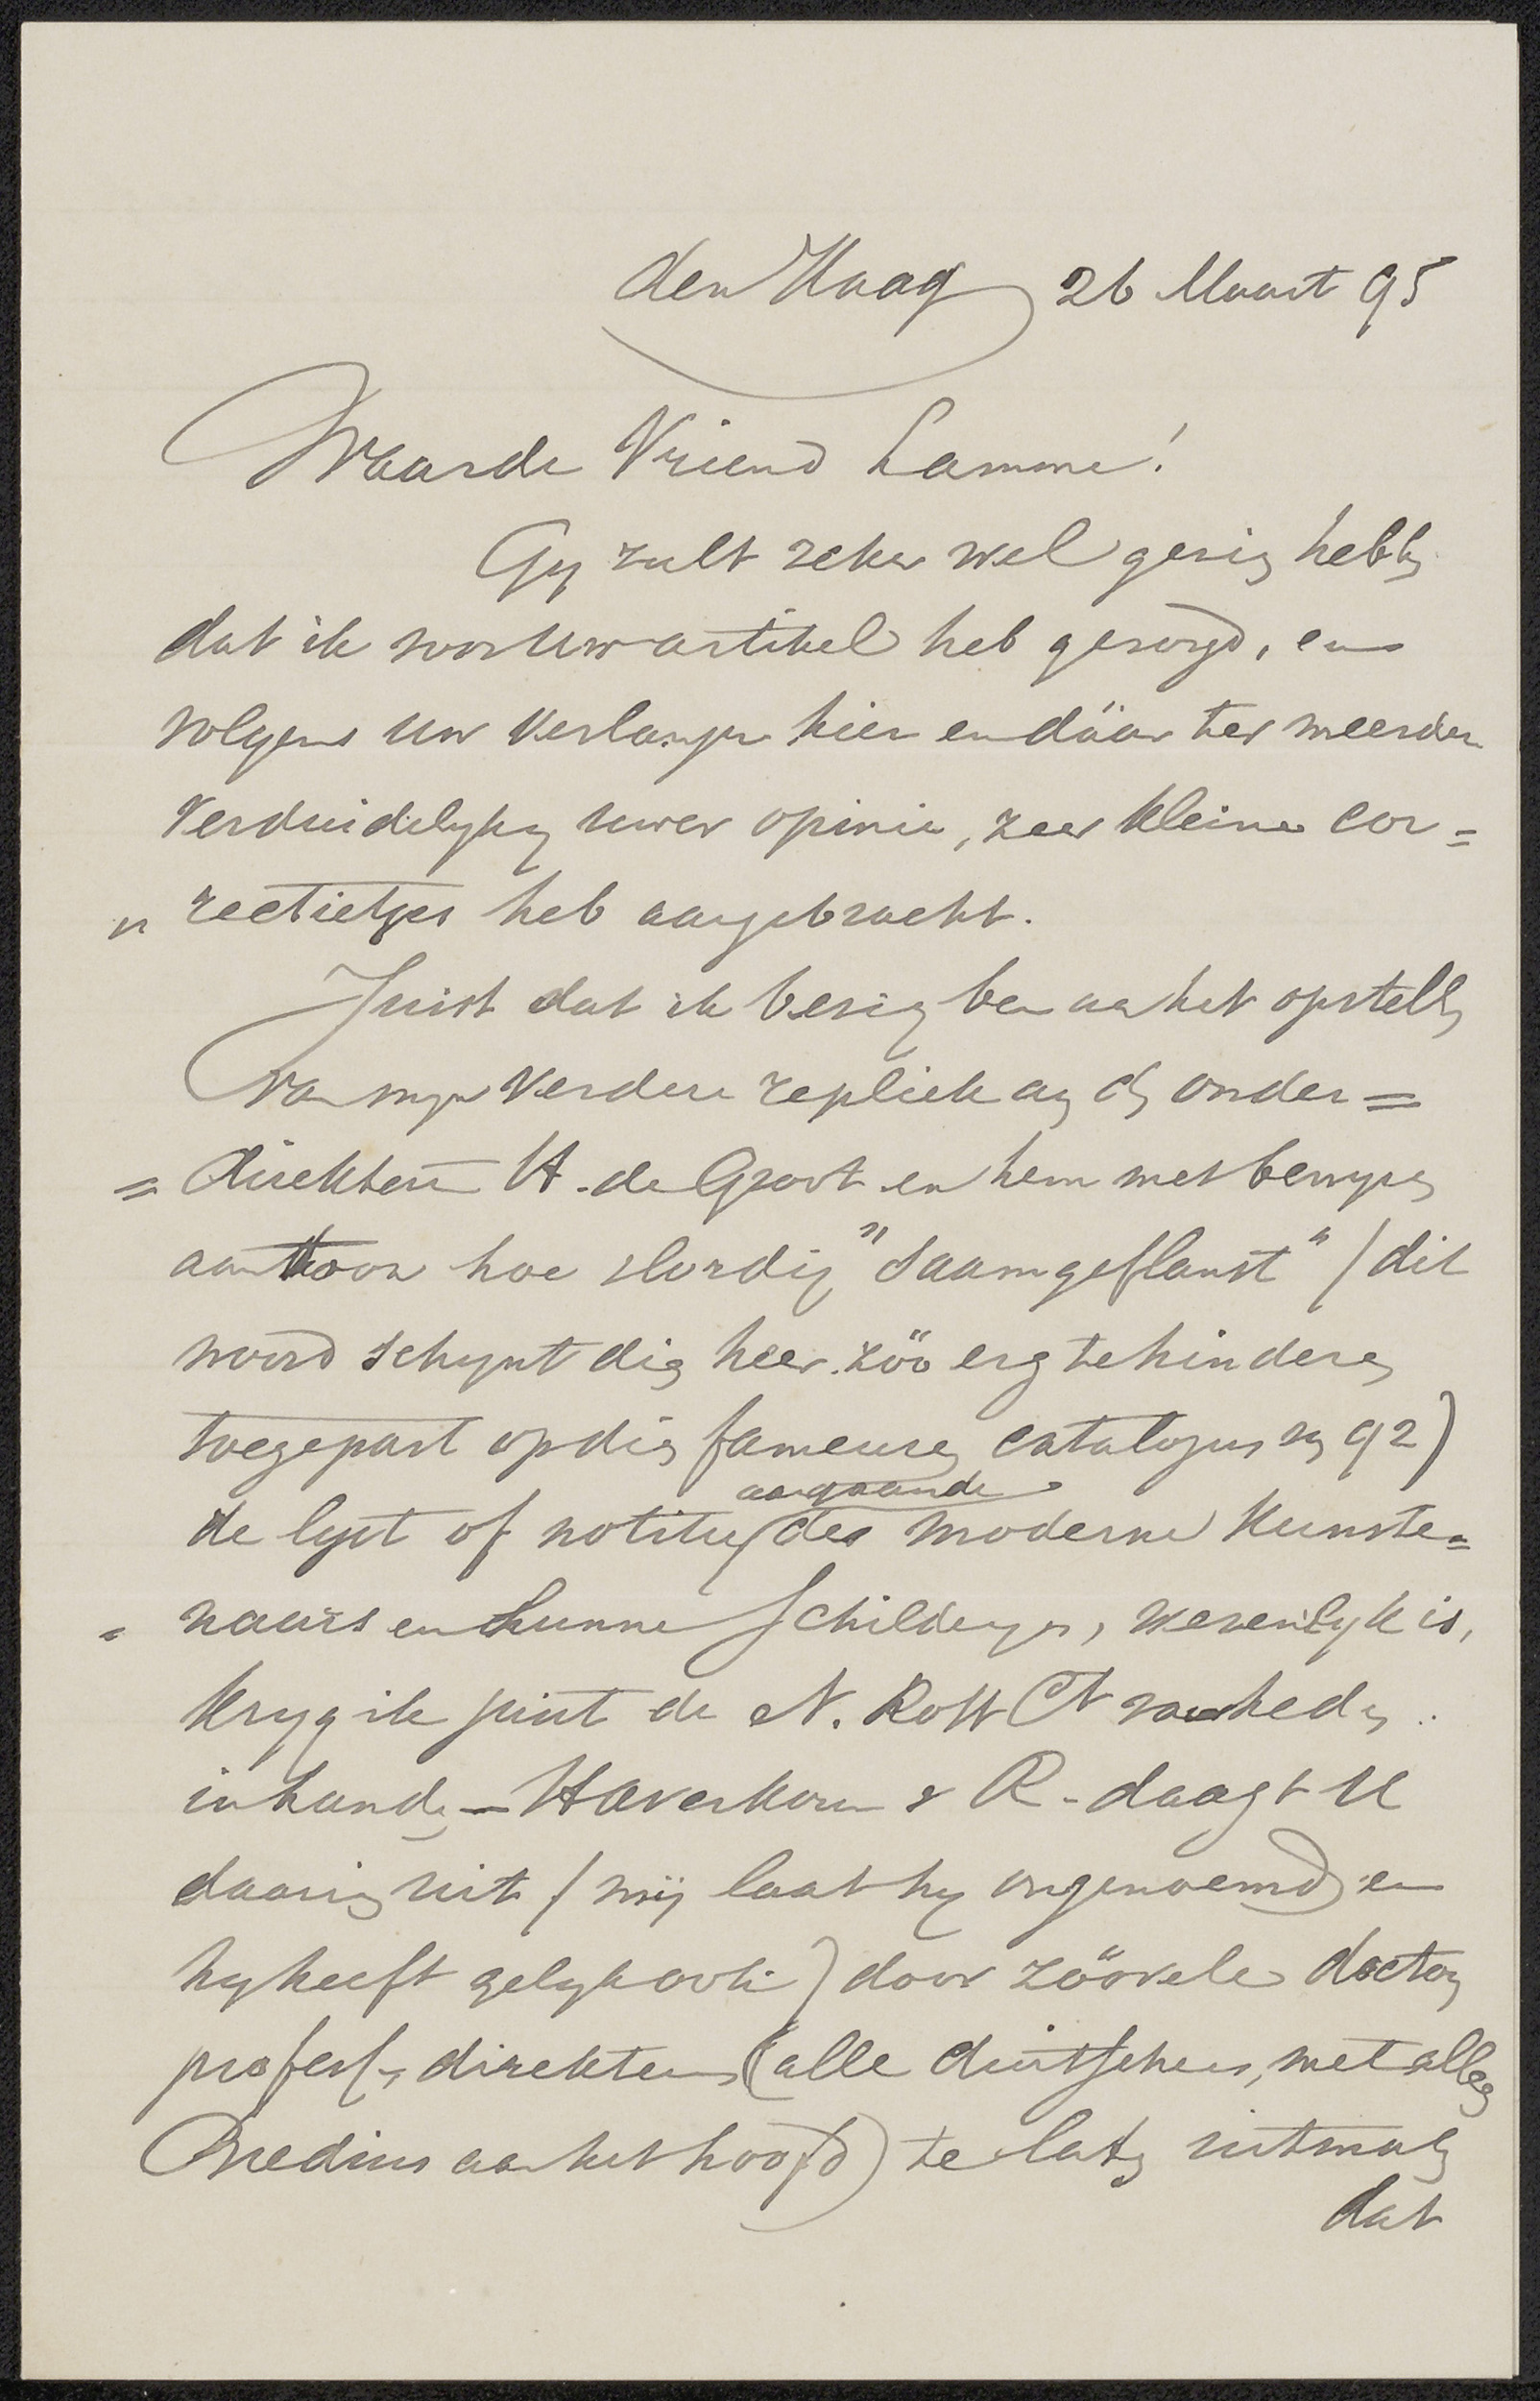 den Haag 26 Maart 95
Waarde Vriend Lamme!
Gy zult zeker wel gezien hebben
dat ik voor Uw artikel heb gezorgd, en
volgens Uw verlangen hier en däar ter meerder
verduidelyking uwer opinie, zeer kleine cor=
" rectietjes heb aangebracht.
Juist dat ik bezig ben aan het opstellen
van myn verdere repliek aan den onder=
= direkteur H. de Groot en hem met bewyzen
aantoon hoe slordig "Saamgeflanst" (dit
woord schynt dien heer zöo erg te hinderen
toegepast op dien fameusen catalogus van 92)
aangaande
de lyst of notities des moderne Kunste=
= naars en hunne Schilderyen, wezenlyk is,
kryg ik juist de N. Rott Ct van heden
in handen – Haverkorn v R. daagt U
daarin uit (mij laat hy ongenoemd en
hy heeft gelyk ook) door zöovele doctoren
professn, direkteurs (alle duitschers, met allen
Bredius aan het hoofd) te laten uitmaken
dat